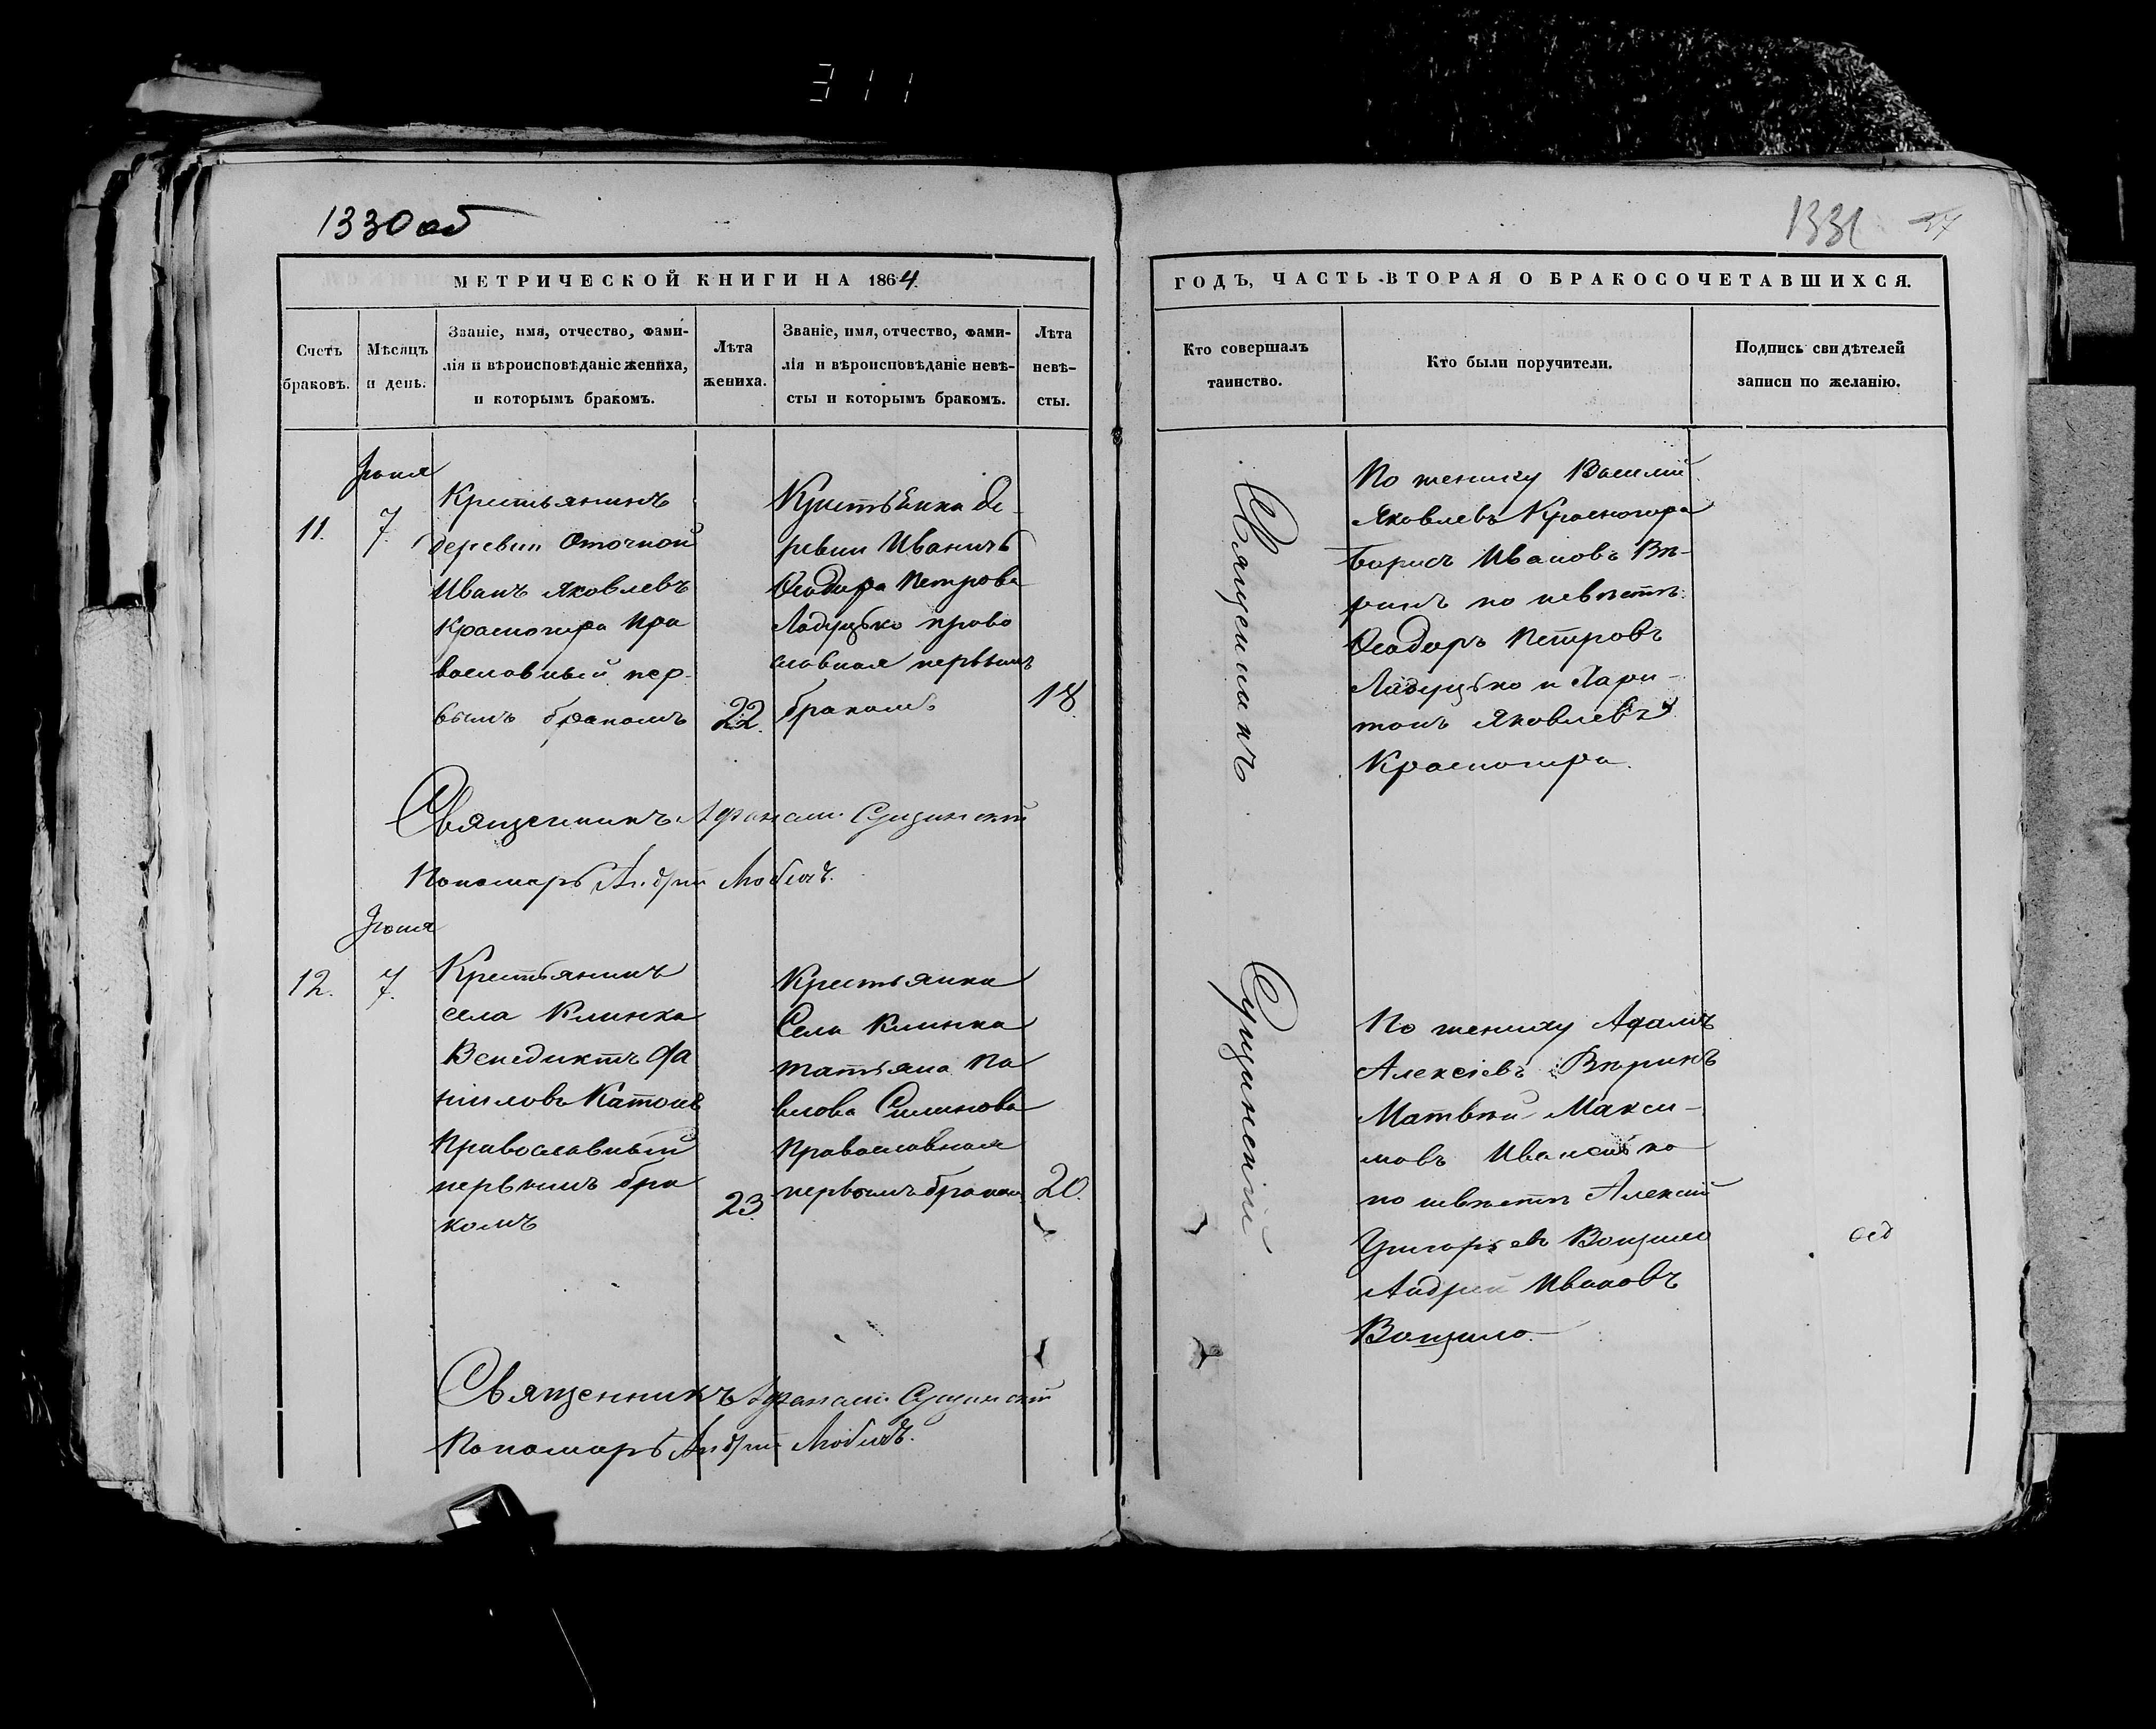 311
1330 об
1331
МЕТРИЧЕСКОЙ КНИГИ НА 1864
ГОДЪ, ЧАСТЬ ВТОРАЯ О БРАКОСОЧЕТАВШИХСЯ.
Счетъ
браковъ.
Мѣсяцъ
и день.
Званіе, имя, отчество, фами-
лія и вѣроисповѣданіе жениха,
и которымъ бракомъ.
Лѣта
жениха.
Званіе, имя, отчество, фами-
лія и вѣроисповѣданіе невѣ-
сты и которымъ бракомъ.
Лѣта
невѣ-
сты.
Кто совершалъ
таинство.
Кто были поручители.
Подпись свидѣтелей
записи по желанію.
11.
Іюня
7.
Крестьянинъ
деревни Оточной
Иванъ Яковлевъ
Красногира Пра
вославный пер-
вымъ бракомъ
22.
Крестьянка де-
ревни Иваничъ
Ѳеодора Петрова
Ладуцько право
славная первымъ
бракомъ
18.
Священникъ
По жениху Василій
Яковлевъ Красногира
Борисъ Ивановъ Вѣ-
ринъ по невѣстѣ
Ѳеодоръ Петровъ
Ладуцько и Лари-
тонъ Яковлевъ
Красногира.
Священникъ Афанасій Сущинскій
Пономарь Андрей
12.
Іюня
7.
Крестьянинъ
села Клинка
Венедиктъ Да
ниловъ
Православный
первымъ бра
комъ
23.
Крестьянка
Села Клинка
Татьяна Па
влова Силинова
Православная
первымъ браком
20.
Сущинскій
По жениху Адамъ
Алексіевъ Вѣринъ
Матвѣй Макси-
мовъ
по невѣстѣ Алексій
Григорьевъ Вощило
Андрей Ивановъ
Вощило.
Священникъ Афанасій Сущинскій
Пономарь Андрей